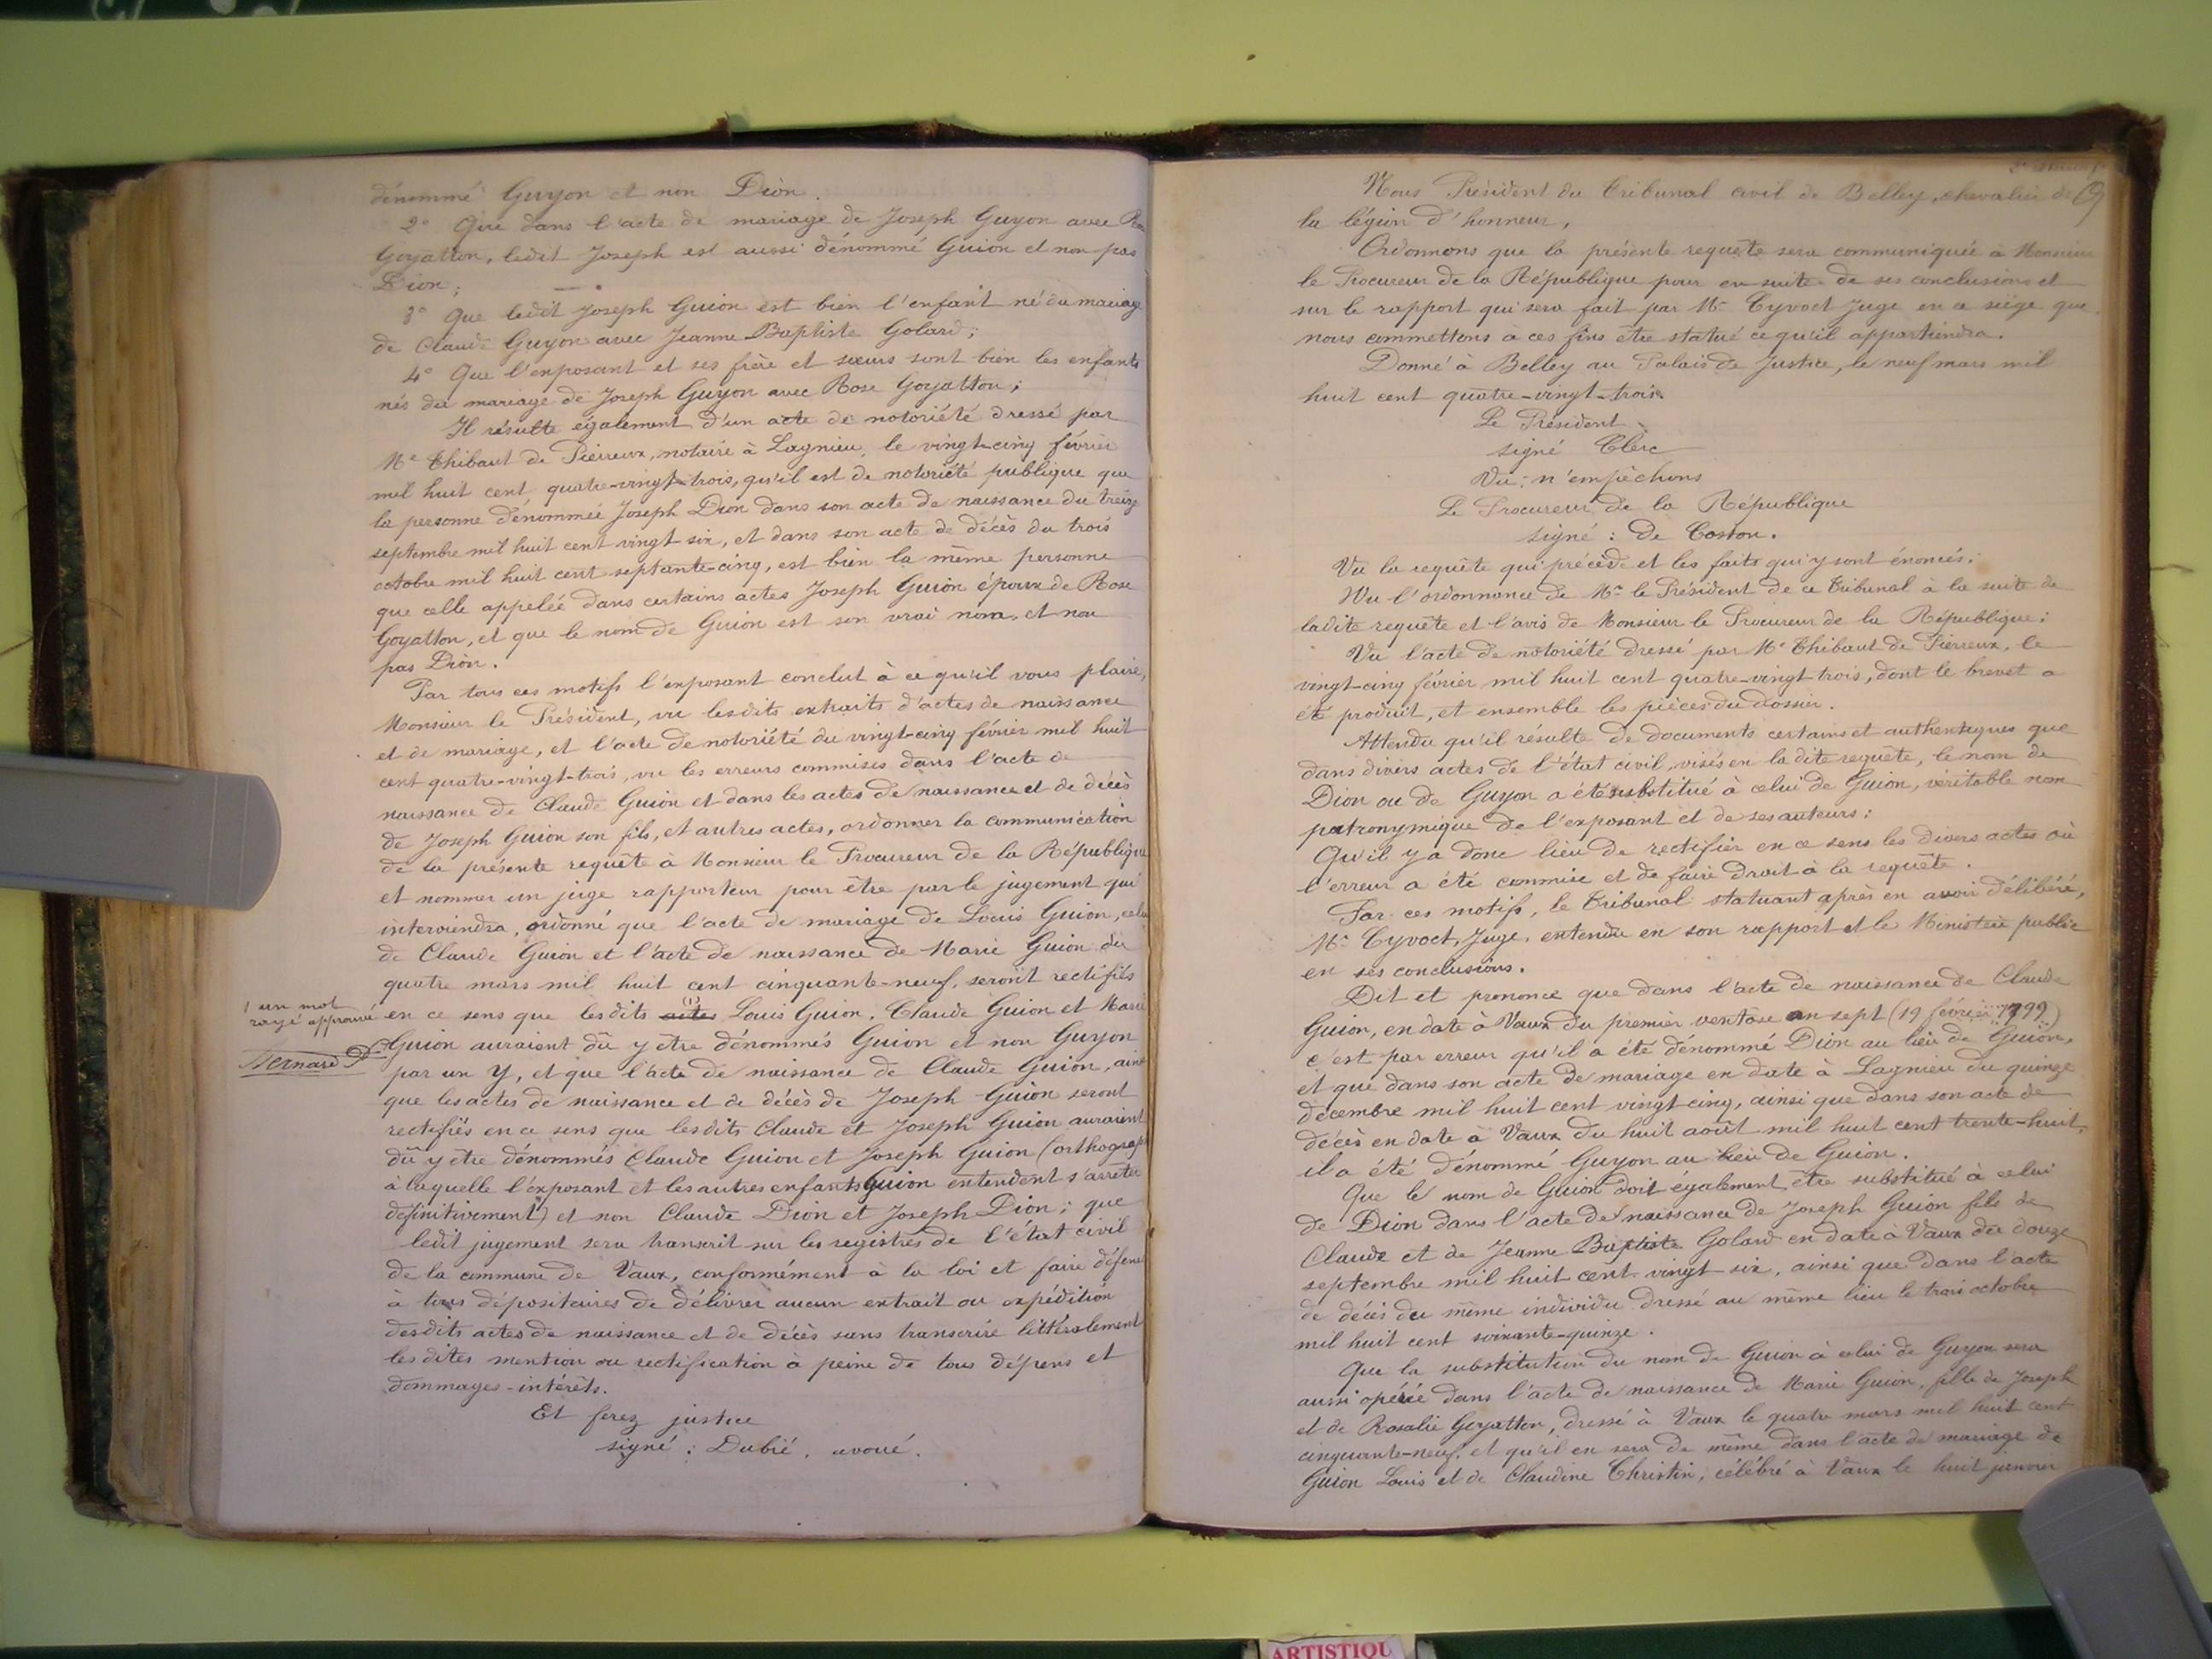 dénommé Guyon et non Dion.
2° Que dans l'acte de mariage de Joseph Guyon avec
Goyatton, ledit Joseph est aussi dénommé Guion et non pas
Dion;
3° Que ledit Joseph Guion est bien l'enfant né du mariage
de Claude Guyon avec Jeanne Baptiste Golard;
4° Que l'exposant et ses frère et sœurs sont bien les enfants
nés du mariage de Joseph Guyon avec Rose Goyatton;
Il résulte également d'un acte de notoriété dressé par
Me Thibaut de Pierreux, notaire à Lagnieu, le vingt-cinq février
mil huit cent quatre-vingt-trois, qu'il est de notoriété publique que
la personne dénommée Joseph Dion dans son acte de naissance du treize
septembre mil huit cent vingt six, et dans son acte de décès du trois
octobre mil huit cent septante-cinq, est bien la même personne
que celle appelée dans certains actes Joseph Guion époux de Rose
Goyatton, et que le nom de Guion est son vrai nom, et non
pas Dion.
Par tous ces motifs l'exposant conclut à ce qu'il vous plaise,
Monsieur le Président, vu lesdits extraits d'actes de naissance
et de mariage, et l'acte de notoriété du vingt-cinq février mil huit
cent quatre-vingt-trois, vu les erreurs commises dans l'acte de
naissance de Claude Guion et dans les actes de naissance et de décès
de Joseph Guion son fils, et autres actes, ordonner la communication
de la présente requête à Monsieur le Procureur de la République
et nommer un juge rapporteur pour être par le jugement qui
interviendra, ordonné que l'acte de mariage de Louis Guion, celui
de Claude Guion et l'acte de naissance de Marie Guion du
quatre mars mil huit cent cinquante-neuf, seront rectifiés
1 un mot
rayé approuvé
Bernard
en ce sens que lesdits actes (1) Louis Guion, Claude Guion et Marie
Guion auraient dû y être dénommés Guion et non Guyon
par un Y, et que l'acte de naissance de Claude Guion, ainsi
que les actes de naissance et de décès de Joseph Guion seront
rectifiés en ce sens que lesdits Claude et Joseph Guion auraient
dû y être dénommés Claude Guion et Joseph Guion (orthographe
à laquelle l'exposant et les autres enfants Guion entendent s'arrêter
définitivement) et non Claude Dion et Joseph Dion; que
ledit jugement sera transcrit sur les registres de l'état civil
de la commune de Vaux, conformément à la loi et faire défense
à tous dépositaires de délivrer aucun extrait ou expédition
desdits actes de naissance et de décès sans transcrire littéralement
lesdites mention ou rectification à peine de tous dépens et
dommages-intérêts.
Et ferez justice
signé: Dubié, avoué.
Nous Président du tribunal civil de Belley, chevalier de
la légion d'honneur,
Ordonnons que la présente requête sera communiquée à Monsieur
le Procureur de la République pour en suite de ses conclusions et
sur le rapport qui sera fait par Mr Tyvoct Juge en ce siège que
nous commettons à ces fins être statué ce qu'il appartiendra.
Donné à Belley au Palais de Justice, le neuf mars mil
huit cent quatre-vingt-trois.
Le Président
signé Clerc
Vu: n'empêchons
Le Procureur de la République
signé: De Coston.
Vu la requête qui précède et les faits qui y sont énoncés;
Vu l'ordonnance de Mr le Président de ce tribunal à la suite de
ladite requête et l'avis de Monsieur le Procureur de la République;
Vu l'acte de notoriété dressé par Me Thibaut de Pierreux, le
vingt-cinq février mil huit cent quatre-vingt trois, dont le brevet a
été produit, et ensemble les pièces du dossier.
Attendu qu'il résulte de documents certains et authentiques que
dans divers actes de l'état civil, visés en ladite requête, le nom de
Dion ou de Guyon a été substitué à celui de Guion, véritable nom
patronymique de l'exposant et de ses auteurs;
Qu'il y a donc lieu de rectifier en ce sens les divers actes où
l'erreur a été commise et de faire droit à la requête.
Par ces motifs, le tribunal statuant après en avoir délibéré,
Mr Tyvoct, Juge, entendu en son rapport et le Ministère public
en ses conclusions.
Dit et prononce que dans l'acte de naissance de Claude
Guion, en date à Vaux du premier ventôse an sept (19 février 1799)
c'est par erreur qu'il a été dénommé Dion au lieu de Guion,
et que dans son acte de mariage en date à Lagnieu du quinze
décembre mil huit cent vingt cinq, ainsi que dans son acte de
décès en date à Vaux du huit août mil huit cent trente-huit,
il a été dénommé Guyon au lieu de Guion.
Que le nom de Guion doit également être substitué à celui
de Dion dans l'acte de naissance de Joseph Guion fils de
Claude et de Jeanne Baptiste Golard en date à Vaux du douze
septembre mil huit cent vingt six, ainsi que dans l'acte
de décès du même individu dressé au même lieu le trois octobre
mil huit cent soixante-quinze.
Que la substitution du nom de Guion à celui de Guyon sera
aussi opérée dans l'acte de naissance de Marie Guion, fille de Joseph
et de Rosalie Goyatton, dressé à Vaux le quatre mars mil huit cent
cinquante-neuf, et qu'il en sera de même dans l'acte de mariage de
Guion Louis et de Claudine Christin, célébré à Vaux le huit janvier
ARTISTIQU